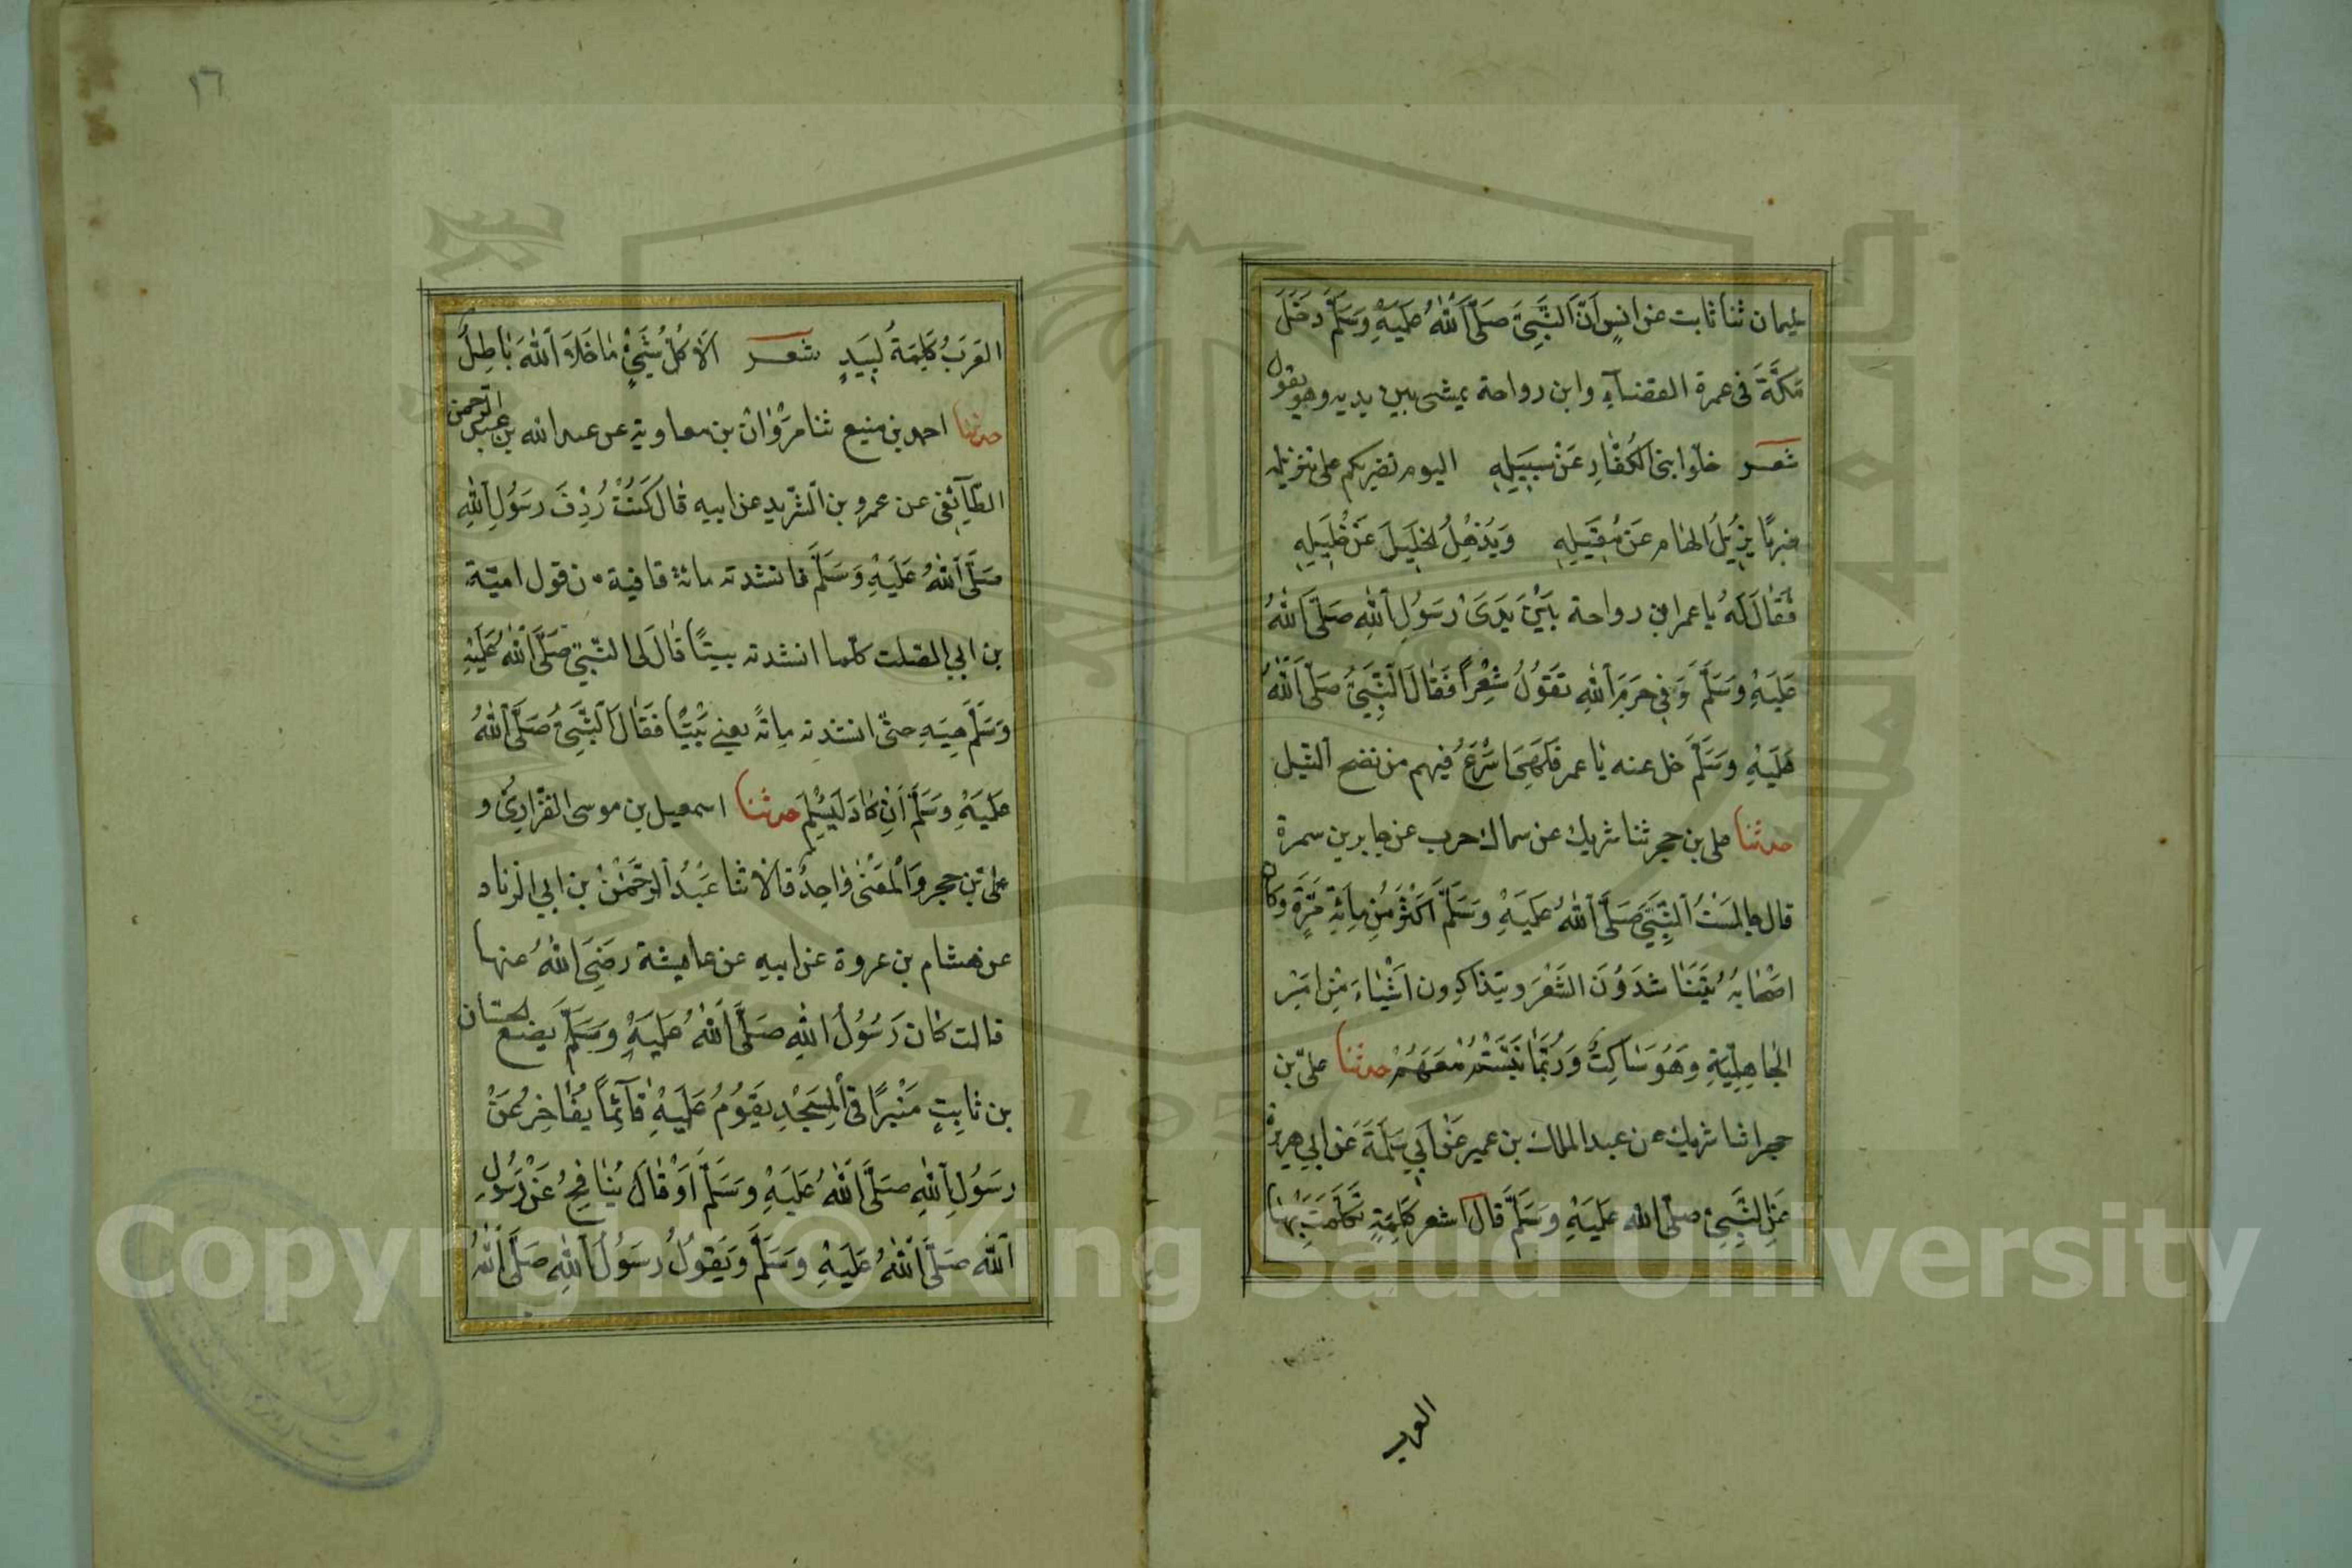 ليمان ثنا ثابت عن انسٍ اَنَّ النَّبِىَّ صَلَّى اللهُ عَلَيْهِ وَسَلَّمَ دَخَلَ
مَكَّةَ فى عمرة القضآءِ وابن رواحة يمشى بين يديه وهو يقول
شعر خلّوا بنى الكُفّارِ عَنْ سَبيلِهِ اليوم نضربكم على تنزيله
ضربًا يُزيلُ الهام عَن مَقيلِهِ وَيُذهِلُ الخَليلَ عَنْ خَليلِهِ
فَقالَ لَهُ يا عمر ابن رواحة بَيْنَ يَدَىْ رَسُولِ اللهِ صَلَّى اللهُ
عَلَيْهِ وَسَلَّمَ وَفِى حَرَمِ اللهِ تَقُولُ شِعْراً فَقالَ النَّبِىُّ صَلَّى اللهُ
عَلَيْهِ وَسَلَّمَ خل عنه يا عمر فَلَهِىَ اَسْرَعُ فيهم من نضح النّبل
حدثنا على بن حجر ثنا شريك عن سماك حرب عن جابر بن سمرة
قال جالَسْتُ النَّبِىَّ صَلَّى اللهُ عَلَيْهِ وَسَلَّمَ اَكْثَرَ مِنْ مِائَةِ مَرَّةٍ وَكان
اصْحابُهُ يَتَنَاشَدُونَ الشَّعْرَ ويتذاكرون اَشْياءَ مِنْ اَمْرِ
الجاهِلِيَّةِ وَهُوَ سَاكِتٌ وَرُبَّمَا تَبَسَّمَ مَعَهُمْ حدثنا علىّ بن
حجر انا شريك عن عبد الملك بن عمير عَنْ اَبِي سَلَمَةَ عَن ابي هريرة
عَنِ النَّبِىِّ صلّى الله عَلَيْهِ وَسَلَّمَ قالَ اشعر كَلِمَةٍ تَكَلَّمَتْ بِهَا
العرب
١٦
العَرَبُ كَلِمَةُ لَبِيَدٍ شعر اَلا كُلُّ شَىْءٍ ما خَلا اللهَ باطِلُ
حدثنا احمد بن منيع ثنا مَرْوَان بن معاوية عن عبد الله بن عبد الرحمن
الطّآئفى عن عمرو بن الشّريد عن ابيه قالَ كُنْتُ رِدْفَ رَسُولِ اللهِ
صَلَّى اللهُ عَلَيْهِ وَسَلَّمَ فانشدته مائة قافية من قول اميّة
بن ابي الصّلت كلّما انشدته بيتًا قالَ لى النّبىّ صَلَّى اللهُ عَلَيْهِ
وَسَلَّمَ هِيَهِ حتّى انشدته مِائَةً يعنى بَيْتًا فَقالَ النَّبِىُّ صَلَّى اللهُ
عَلَيْهِ وَسَلَّمَ اَنْ كَادَ لَيُسْلِمَ حدثنا اسمعيل بن موسى الفَزارِىُّ و
علىّ بن حجر وَالْمَعْنى وَاحِدٌ قالا ثنا عَبْدُ الرَّحْمٰنِ بن ابي الزناد
عن هشام بن عروة عن ابيهِ عن عايشة رَضِىَ اللهُ عنها
قالت كانَ رَسُولُ اللهِ صَلَّى اللهُ عَلَيْهِ وَسَلَّمَ يضع لحسّان
بن ثابِتٍ مَنْبَرًا فى المِسَجْدِ يَقُومُ عَلَيْهِ قآئِماً يُفَاخِرُ عَنْ
رسَوُلِ اللهِ صَلَّى اللهُ عَلَيْهِ وَسَلَّمَ اَوْ قالَ يُنافِحُ عَنْ رَسُولِ
اللهِ صَلَّى اللهُ عَلَيْهِ وَسَلَّمَ وَيَقُولُ رسَوُلُ اللهِ صَلَّى اللهُ
Copyright © King Saud University